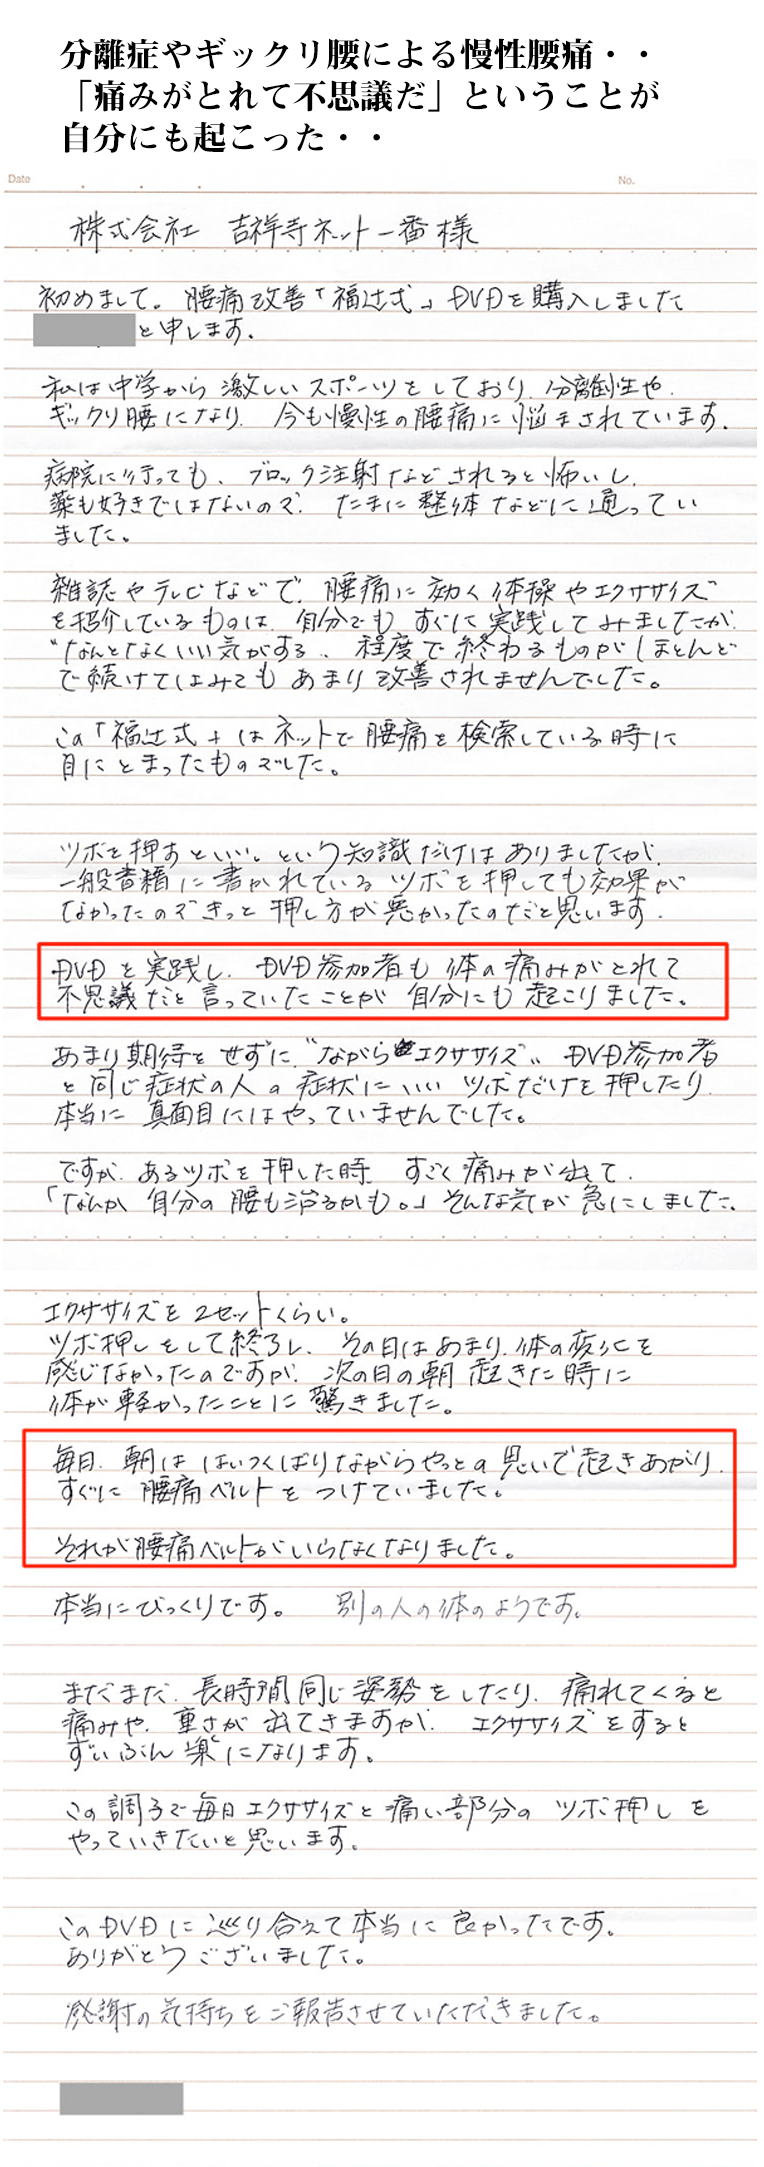 分離症やギックリ腰による慢性腰痛・・
「痛みがとれて不思議だ」ということが
自分にも起こった・・
Date
No.
株式会社 吉祥寺ネット一番様
初めまして。腰痛改善「福辻式」DVDを購入しました
と申します。
私は中学から激しいスポーツをしており、分離症や
ギックリ腰になり、今も慢性の腰痛に悩まされています。
病院に行っても、ブロック注射などされると怖いし、
薬も好きではないので、たまに整体などに通ってい
ました。
雑誌やテレビなどで、腰痛に効く体操やエクササイズ
を紹介しているものは、自分でもすぐに実践してみましたが、
"なんとなくいい気がする〟程度で終わるものがほとんど
で続けてはみてもあまり改善されませんでした。
この「福辻式」はネットで腰痛を検索している時に
目にとまったものでした。
ツボを押すといい。という知識だけはありましたが、
一般書籍に書かれているツボを押しても効果が
なかったのできっと押し方が悪かったのだと思います。
DVDを実践し、DVD参加者も体の痛みがとれて
不思議だと言っていたことが自分にも起こりました。
あまり期待をせずに、"ながらエクササイズ〟DVD参加者
と同じ症状の人の症状にいいツボだけを押したり、
本当に真面目にはやっていませんでした。
ですが、あるツボを押した時、すごく痛みが出て、
「なんか自分の腰も治るかも。」そんな気が急にしました。
エクササイズを2セットくらい。
ツボ押しをして終了し、その日はあまり、体の変化を
感じなかったのですが、次の日の朝起きた時に
体が軽かったことに驚きました。
毎日、朝ははいつくばりながらやっとの思いで起きあがり、
すぐに腰痛ベルトをつけていました。
それが腰痛ベルトがいらなくなりました。
本当にびっくりです。 別の人の体のようです。
まだまだ、長時間同じ姿勢をしたり、痛れてくると
痛みや、重さが出てきますが、エクササイズをすると
ずいぶん楽になります。
この調子で毎日エクササイズと痛い部分のツボ押しを
やっていきたいと思います。
このDVDに巡り合えて本当に良かったです。
ありがとうございました。
感謝の気持ちをご報告させていただきました。